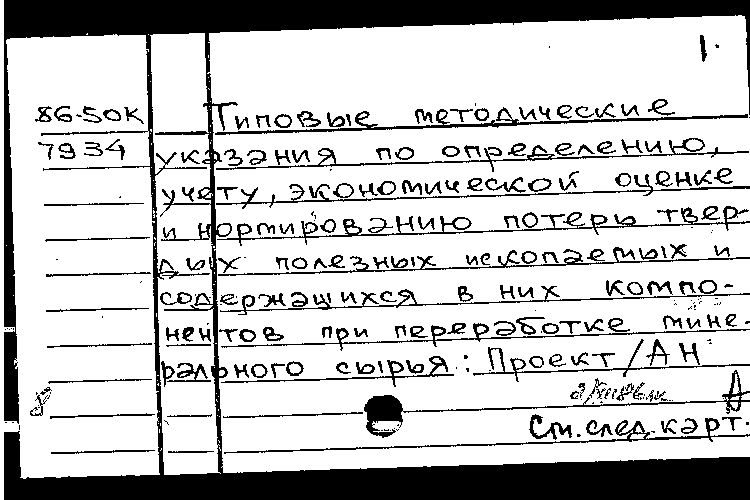 1.
86-50К Типовые методические
7934 указания по определению,
учету, экономической оценке
и нормированию потерь твер-
дых полезных ископаемых и
содержащихся в них компо-
нентов при переработке мине-
рального сырья: Проект/АН
8
А
См. след. карт.